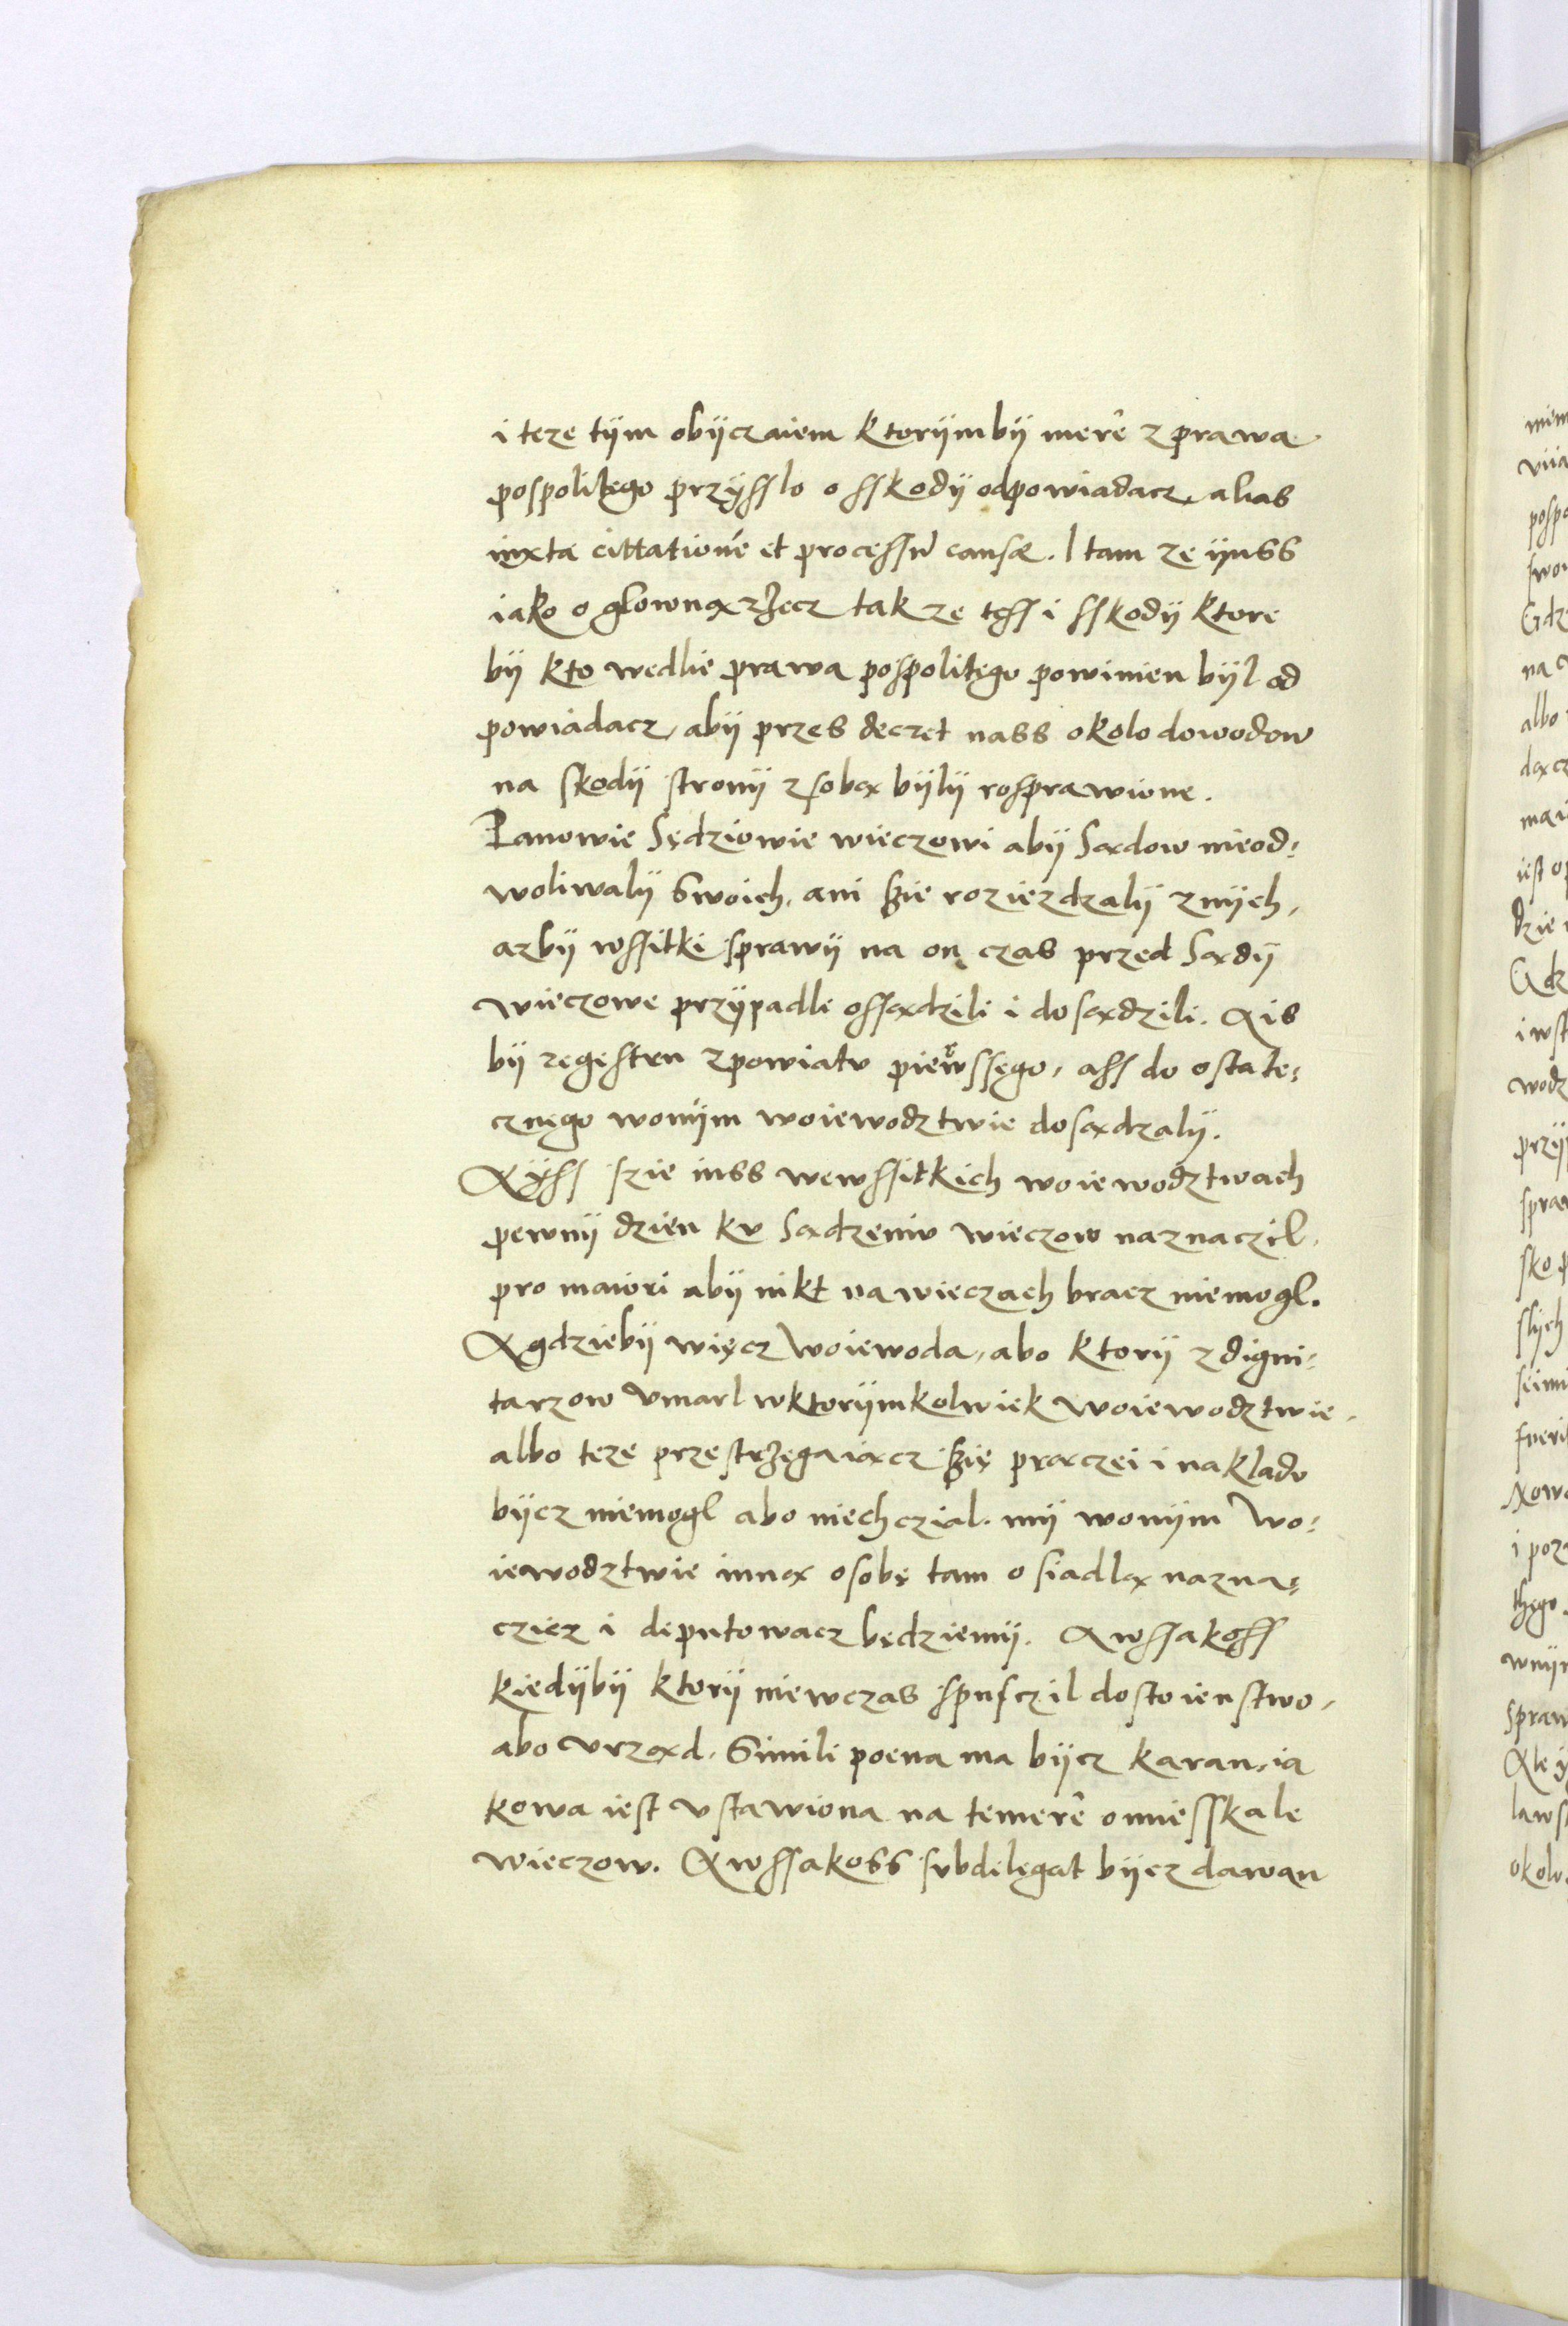 i teze tÿm obÿczaiem ktorÿmbÿ mere z prawa
pospolitego przÿsslo o sskodÿ odpowiadacz, alias
iuxta cittationē et processū causæ. I tam ze ÿuss
iako o glowną rzecz tak ze tess i sskodÿ ktore
bÿ kto wedlie prawa pospolitego powinien bÿl od
powiadacz, abÿ przes decret nass okolo dowodow
na skodÿ stronÿ z sobą bÿlÿ rosprawione.
Panowie Sędziowie wieczowi abÿ Sądow nieod:
woliwalÿ Swoich, ani szie roziezdzalÿ znÿch,
azbÿ wssitki sprawÿ na onę czas przed Sądÿ
wieczowe przÿpadli ossądzili i dosądzili. A is
bÿ regestru z powiatu pierwssego, ass do ostate:
cznego wonÿm woiewodztwie dosądzalÿ.
A ÿss szie iuss wewssitkich woiewodztwach
pewnÿ dzien ku Sądzeniu wieczow naznaczil,
pro maiori abÿ nikt na wieczach bracz niemogl.
A gdziebÿ więcz woiewoda, abo ktorÿ z digni:
tarzow vmarl wktorÿmkolwiek woiewodztwie,
albo teze przestrzegaiącz szię prączei i nakladu
bÿcz niemogl abo niechczial. mÿ wonÿm wo:
iewodztwie inną osobę tam osiadlą nazna:
cziez i deputowacz będziemÿ. A wssakoss
kiedÿbÿ ktorÿ niewczas spusczil dostoienstwo,
abo vrząd, Simili poena ma bÿcz karan, ia
kowa iest vstawiona na temere omiesskale
wieczow. A wssakoss subdelegat bÿcz dawan